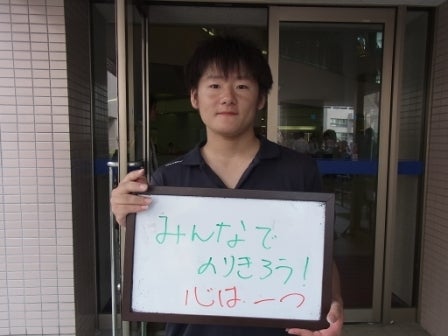 みんなで
のりきろう!
心は一つ